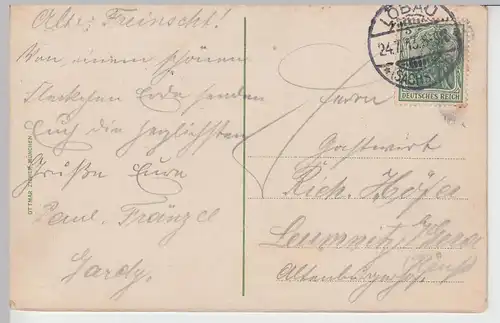 Alter Freinscht!
Von einem schönen
Fleckchen Erde senden
Euch die herzlichsten
Grüße Eure
Paul Fränzel
OTTMAR ZIEHER, MÜNCHEN
LÖBAU
24.7.
(SACHS
DEUTSCHES REICH
Herrn
Gastwirt
Rich. Höfer
Leumnitz
Altenburgerhof
Reuß